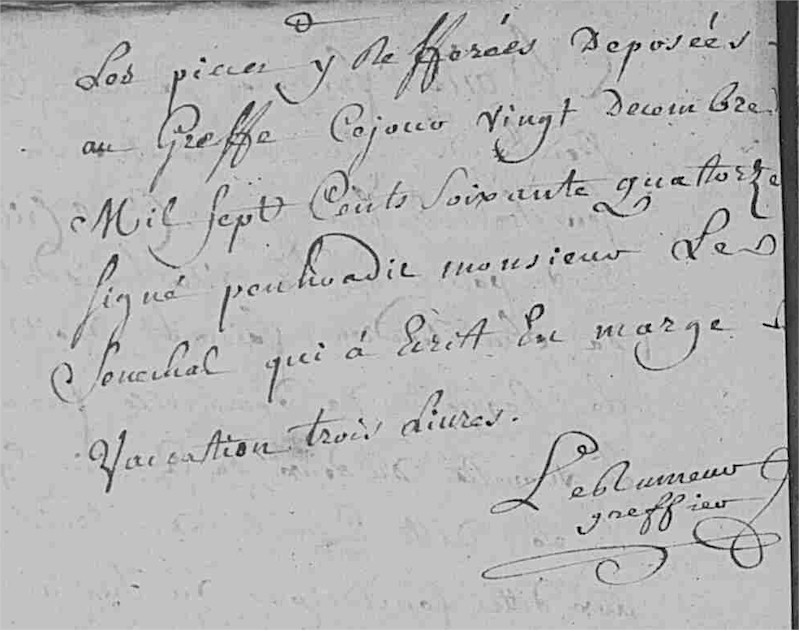 Les pieces y Refferées Deposées
au Greffe Cejour vingt Decembre
Mil sept Cents soixante quattorze
signé penhoadic monsieur Le
Senechal qui à Ecrit En marge
Vaccation trois Livres.
Le Rumeur
greffier